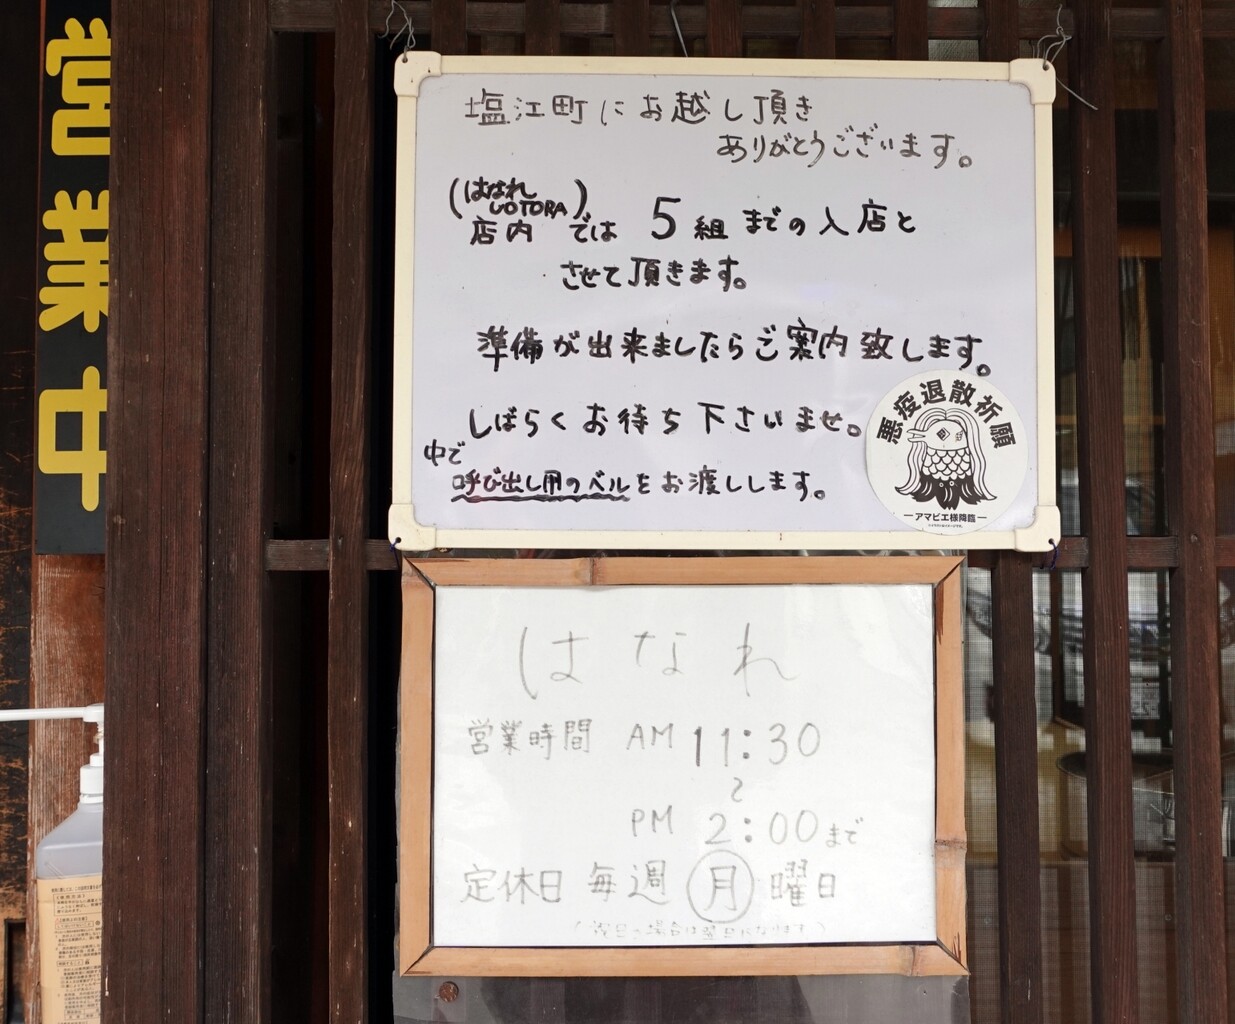 営業中
塩江町にお越し頂き
ありがとうございます。
(はなれ
UOTORA)
店内では 5組までの入店と
させて頂きます。
準備が出来ましたらご案内致します。
しばらくお待ち下さいませ。
中で
呼び出し用のベルをお渡しします。
悪疫退散祈願
アマビエ様降臨
はなれ
営業時間 AM 11:30
〜
PM 2:00まで
定休日 毎週 月曜日
(祝日の場合は翌日になります)